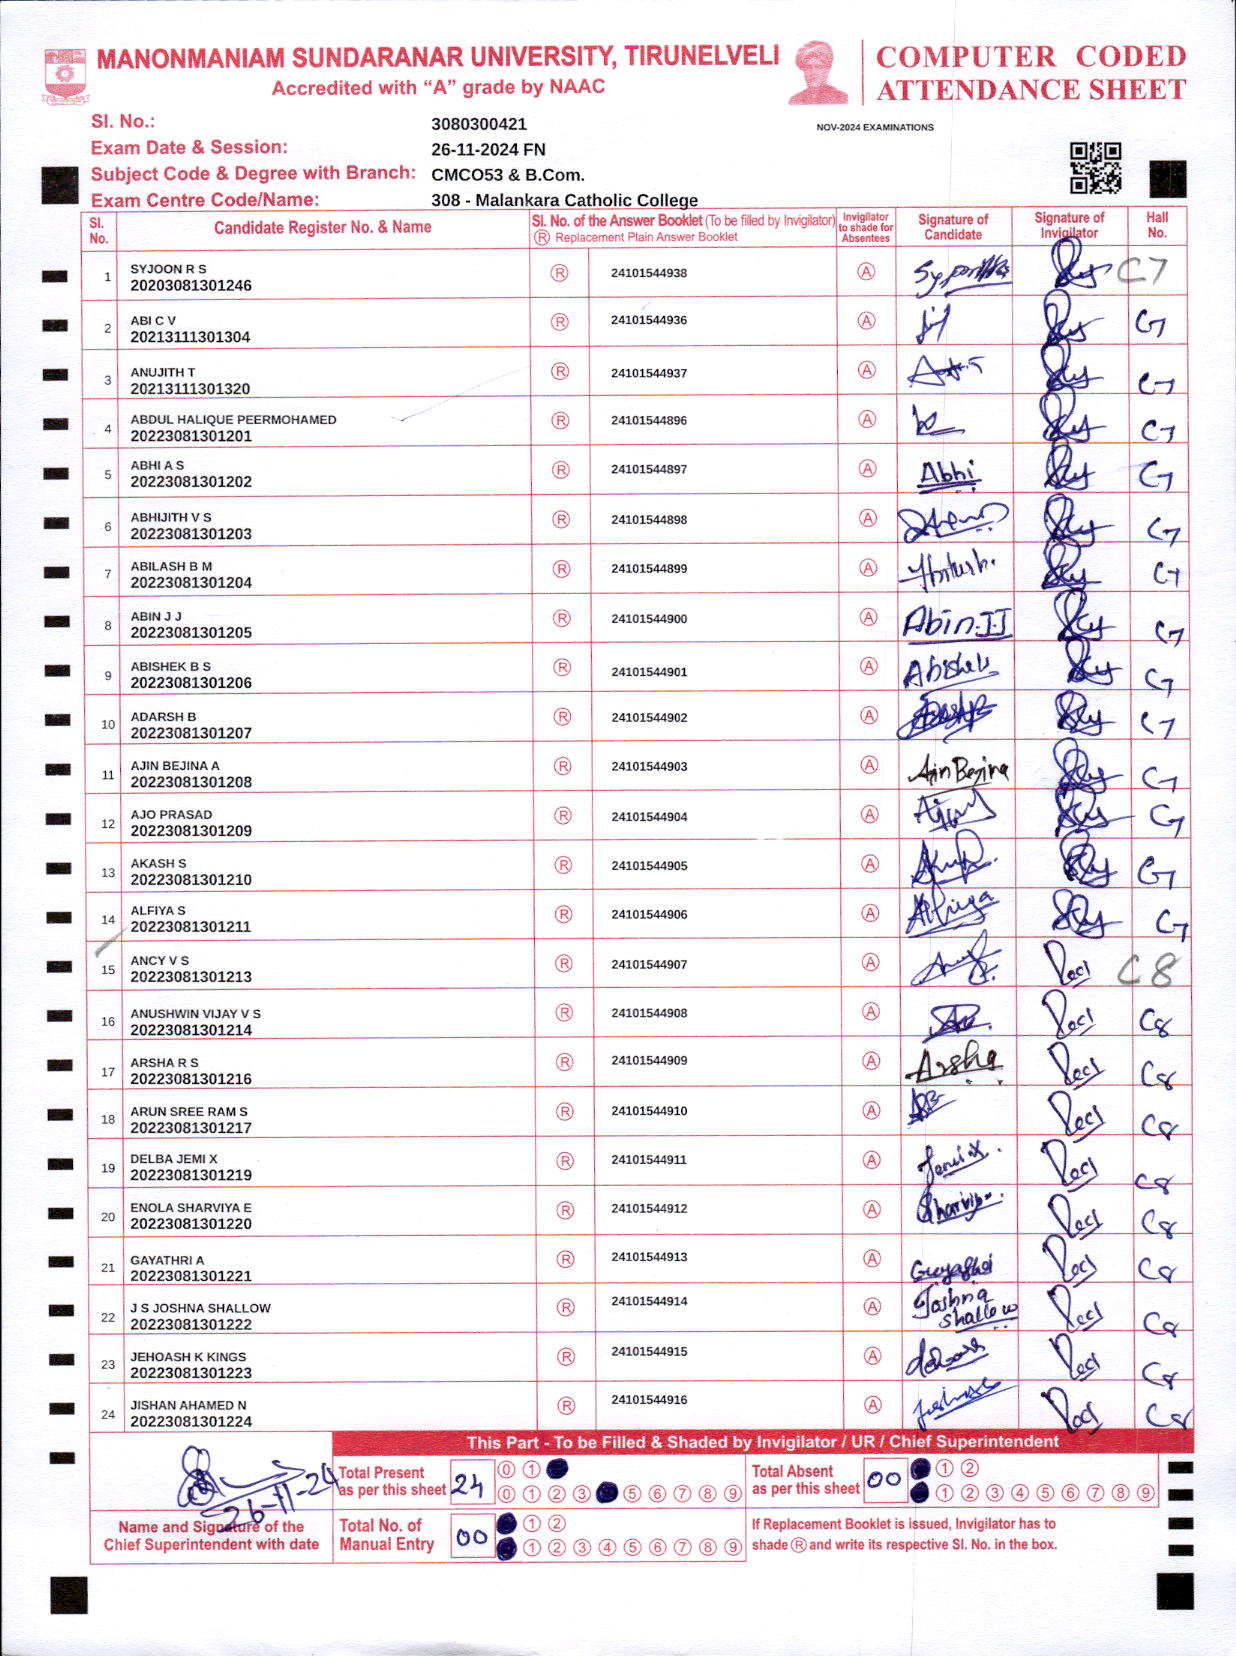 MANONMANIAM SUNDARANAR UNIVERSITY, TIRUNELVELI
Accredited with “A” grade by NAAC
COMPUTER CODED
ATTENDANCE SHEET
Sl. No.: 3080300421
NOV-2024 EXAMINATIONS
Exam Date & Session: 26-11-2024 FN
Subject Code & Degree with Branch: CMCO53 & B.Com.
Exam Centre Code/Name: 308 - Malankara Catholic College
Sl. No.
Candidate Register No. & Name
Sl. No. of the Answer Booklet (To be filled by Invigilator)
Ⓡ Replacement Plain Answer Booklet
Invigilator to shade for Absentees
Signature of Candidate
Signature of Invigilator
Hall No.
1 SYJOON R S Ⓡ 24101544938 Ⓐ C7
20203081301246
2 ABI C V Ⓡ 24101544936 Ⓐ C7
20213111301304
3 ANUJITH T Ⓡ 24101544937 Ⓐ C7
20213111301320
4 ABDUL HALIQUE PEERMOHAMED Ⓡ 24101544896 Ⓐ C7
20223081301201
5 ABHI A S Ⓡ 24101544897 Ⓐ Abhi C7
20223081301202
6 ABHIJITH V S Ⓡ 24101544898 Ⓐ C7
20223081301203
7 ABILASH B M Ⓡ 24101544899 Ⓐ C7
20223081301204
8 ABIN J J Ⓡ 24101544900 Ⓐ Abin.JJ C7
20223081301205
9 ABISHEK B S Ⓡ 24101544901 Ⓐ Abishek C7
20223081301206
10 ADARSH B Ⓡ 24101544902 Ⓐ C7
20223081301207
11 AJIN BEJINA A Ⓡ 24101544903 Ⓐ Ajin Bejina C7
20223081301208
12 AJO PRASAD Ⓡ 24101544904 Ⓐ C7
20223081301209
13 AKASH S Ⓡ 24101544905 Ⓐ C7
20223081301210
14 ALFIYA S Ⓡ 24101544906 Ⓐ Alfiya C7
20223081301211
15 ANCY V S Ⓡ 24101544907 Ⓐ C8
20223081301213
16 ANUSHWIN VIJAY V S Ⓡ 24101544908 Ⓐ C8
20223081301214
17 ARSHA R S Ⓡ 24101544909 Ⓐ Arsha C8
20223081301216
18 ARUN SREE RAM S Ⓡ 24101544910 Ⓐ C8
20223081301217
19 DELBA JEMI X Ⓡ 24101544911 Ⓐ C8
20223081301219
20 ENOLA SHARVIYA E Ⓡ 24101544912 Ⓐ C8
20223081301220
21 GAYATHRI A Ⓡ 24101544913 Ⓐ Gayathri C8
20223081301221
22 J S JOSHNA SHALLOW Ⓡ 24101544914 Ⓐ Joshna Shallow C8
20223081301222
23 JEHOASH K KINGS Ⓡ 24101544915 Ⓐ C8
20223081301223
24 JISHAN AHAMED N Ⓡ 24101544916 Ⓐ C8
20223081301224
This Part - To be Filled & Shaded by Invigilator / UR / Chief Superintendent
26-11-24
Name and Signature of the
Chief Superintendent with date
Total Present
as per this sheet 24
0 1
0 1 2 3 5 6 7 8 9
Total Absent
as per this sheet 00
1 2
1 2 3 4 5 6 7 8 9
Total No. of
Manual Entry 00
1 2
1 2 3 4 5 6 7 8 9
If Replacement Booklet is issued, Invigilator has to
shade Ⓡ and write its respective Sl. No. in the box.